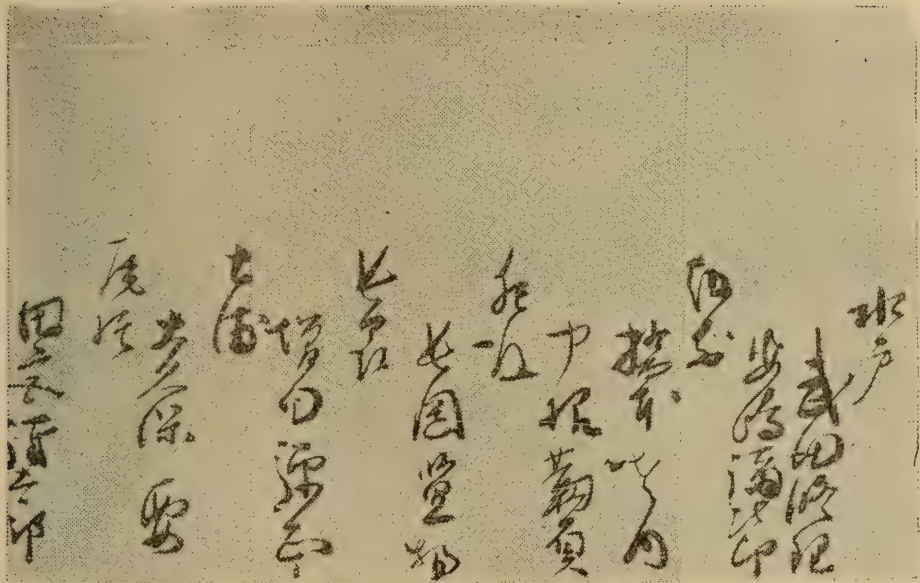 水戸
武田修理
安島彌次郎
越前
橋本左内
中根靱負
肥後
長岡監物
長州
増田弾正
土浦
大久保要
尾張
田宮彌太郎